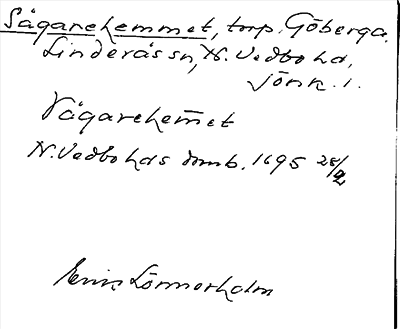 Sågarehemmet, torp. Göberga.
Linderås sn, N. Vedbo hd,
Jönk. l.
Sågarehem̄et
N. Vedbo hds domb. 1695 28/2
Erin Lönnerholm